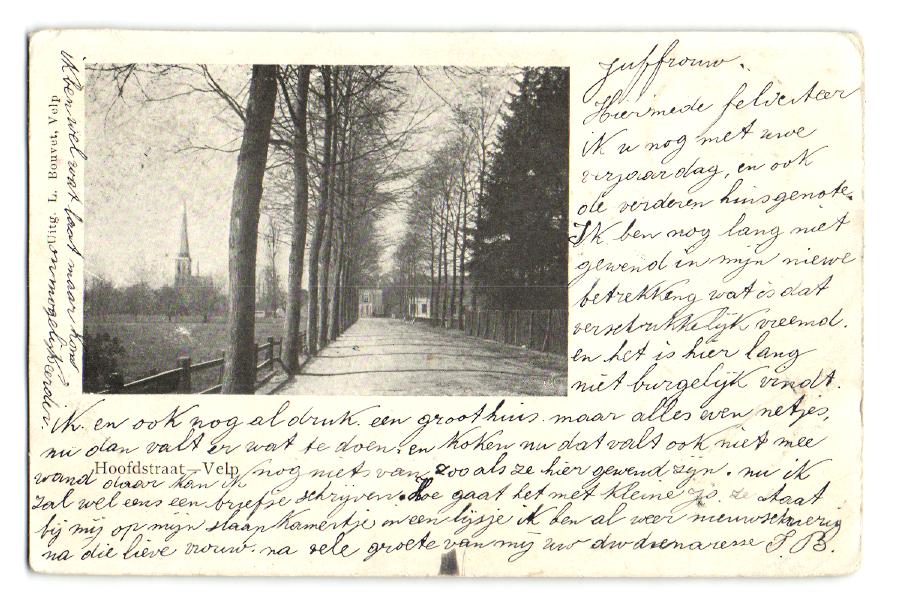 Juffrouw.
Hiermede feliciteer
ik u nog met uwe
verjaardag, en ook
de verderen huisgenote.
Ik ben nog lang niet
gewend in mijn niewe
betrekking wat is dat
verschrikkelijk vreemd.
en het is hier lang
niet burgelijk vindt
ik. en ook nog al druk. een groot huis. maar alles even netjes,
nu dan valt er wat te doen. en koken nu dat valt ook niet mee
want daar kan ik nog niets van zooals ze hier gewend zijn. nu ik
zal wel eens een briefje schrijven. hoe gaat het met kleine ze staat
bij mij op mijn slaapkamertje in een lijsje ik ben al weer nieuwschierig
na die lieve vrouw. na vele groete van mij uw dw dienaresse J. B.
Hoofdstraat—Velp
Uitg. Bouvat, Velp
ik ben wel wat laat maar kond
onmogelijk eerder.